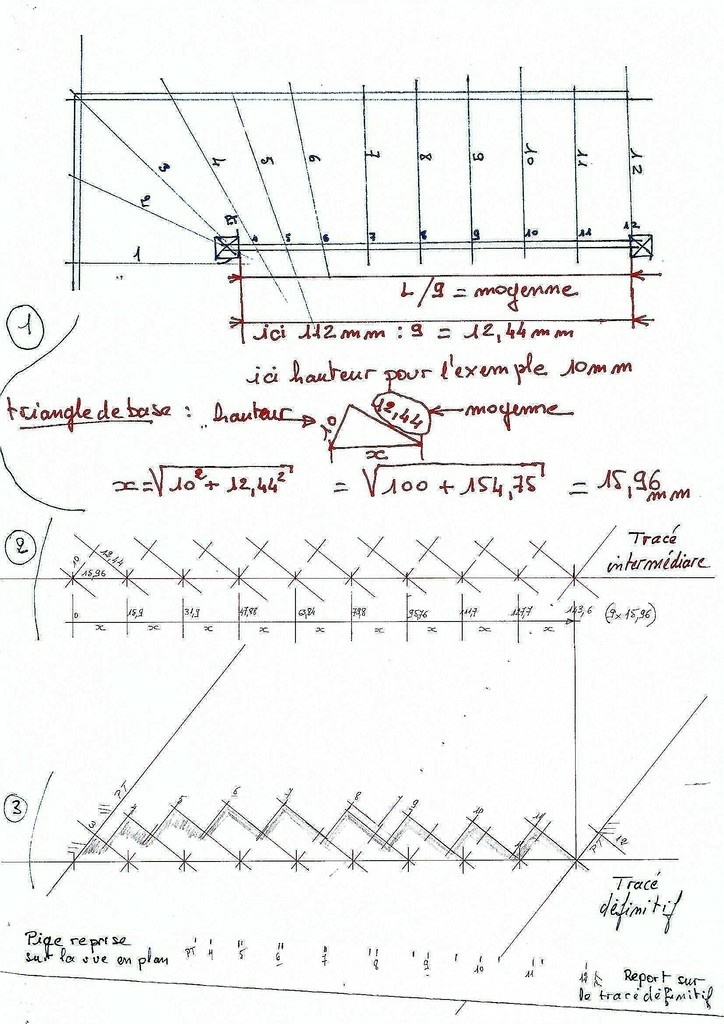 3 4 5 6 7 8 9 10 11 12
2
PT
4 5 6 7 8 9 10 11 12
1
L/9 = moyenne
1
ici 112 mm : 9 = 12,44 mm
ici hauteur pour l'exemple 10 mm
triangle de base : hauteur 10 12,44 moyenne
x
x = √10² + 12,44² = √100 + 154,75 = 15,96 mm
2
Tracé
intermédiare
10 12,44
15,96
0 15,9 31,9 47,88 63,84 79,8 95,76 111,7 127,7 143,6 (9x15,96)
x x x x x x x x x
3
PT
3 4 5 6 7 8 9 10 11 PT 12
Tracé
définitif
Pige reprise
sur la vue en plan
PT 4 5 6 7 8 9 10 11 12 PT
Report sur
le tracé définitif